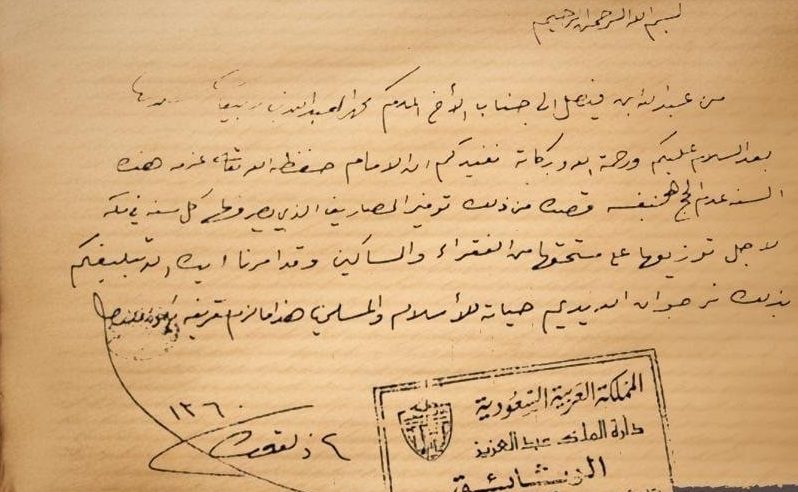 بسم الله الرحمن الرحيم
من عبدالله ابن فيصل الى جناب الأخ المكرم
بعد السلام عليكم ورحمة الله وبركاته نفيدكم ان الامام حفظه الله تعالى عزم هذه
السنه عدم الحج بنفسه قصده من ذلك توفير المصاريف الذي يصرفها كل سنه في مكه
لاجل توزيعها على مستحقها من الفقراء والمساكين وقد امرنا ايده الله تبليغكم
بذلك نرجو ان الله يديم حياته للأسلام والمسلمين هذا مالزم تعريفه
٢ ذلقعده ١٣٦٠
المملكة العربية السعودية
دارة الملك عبد العزيز
الوثائق